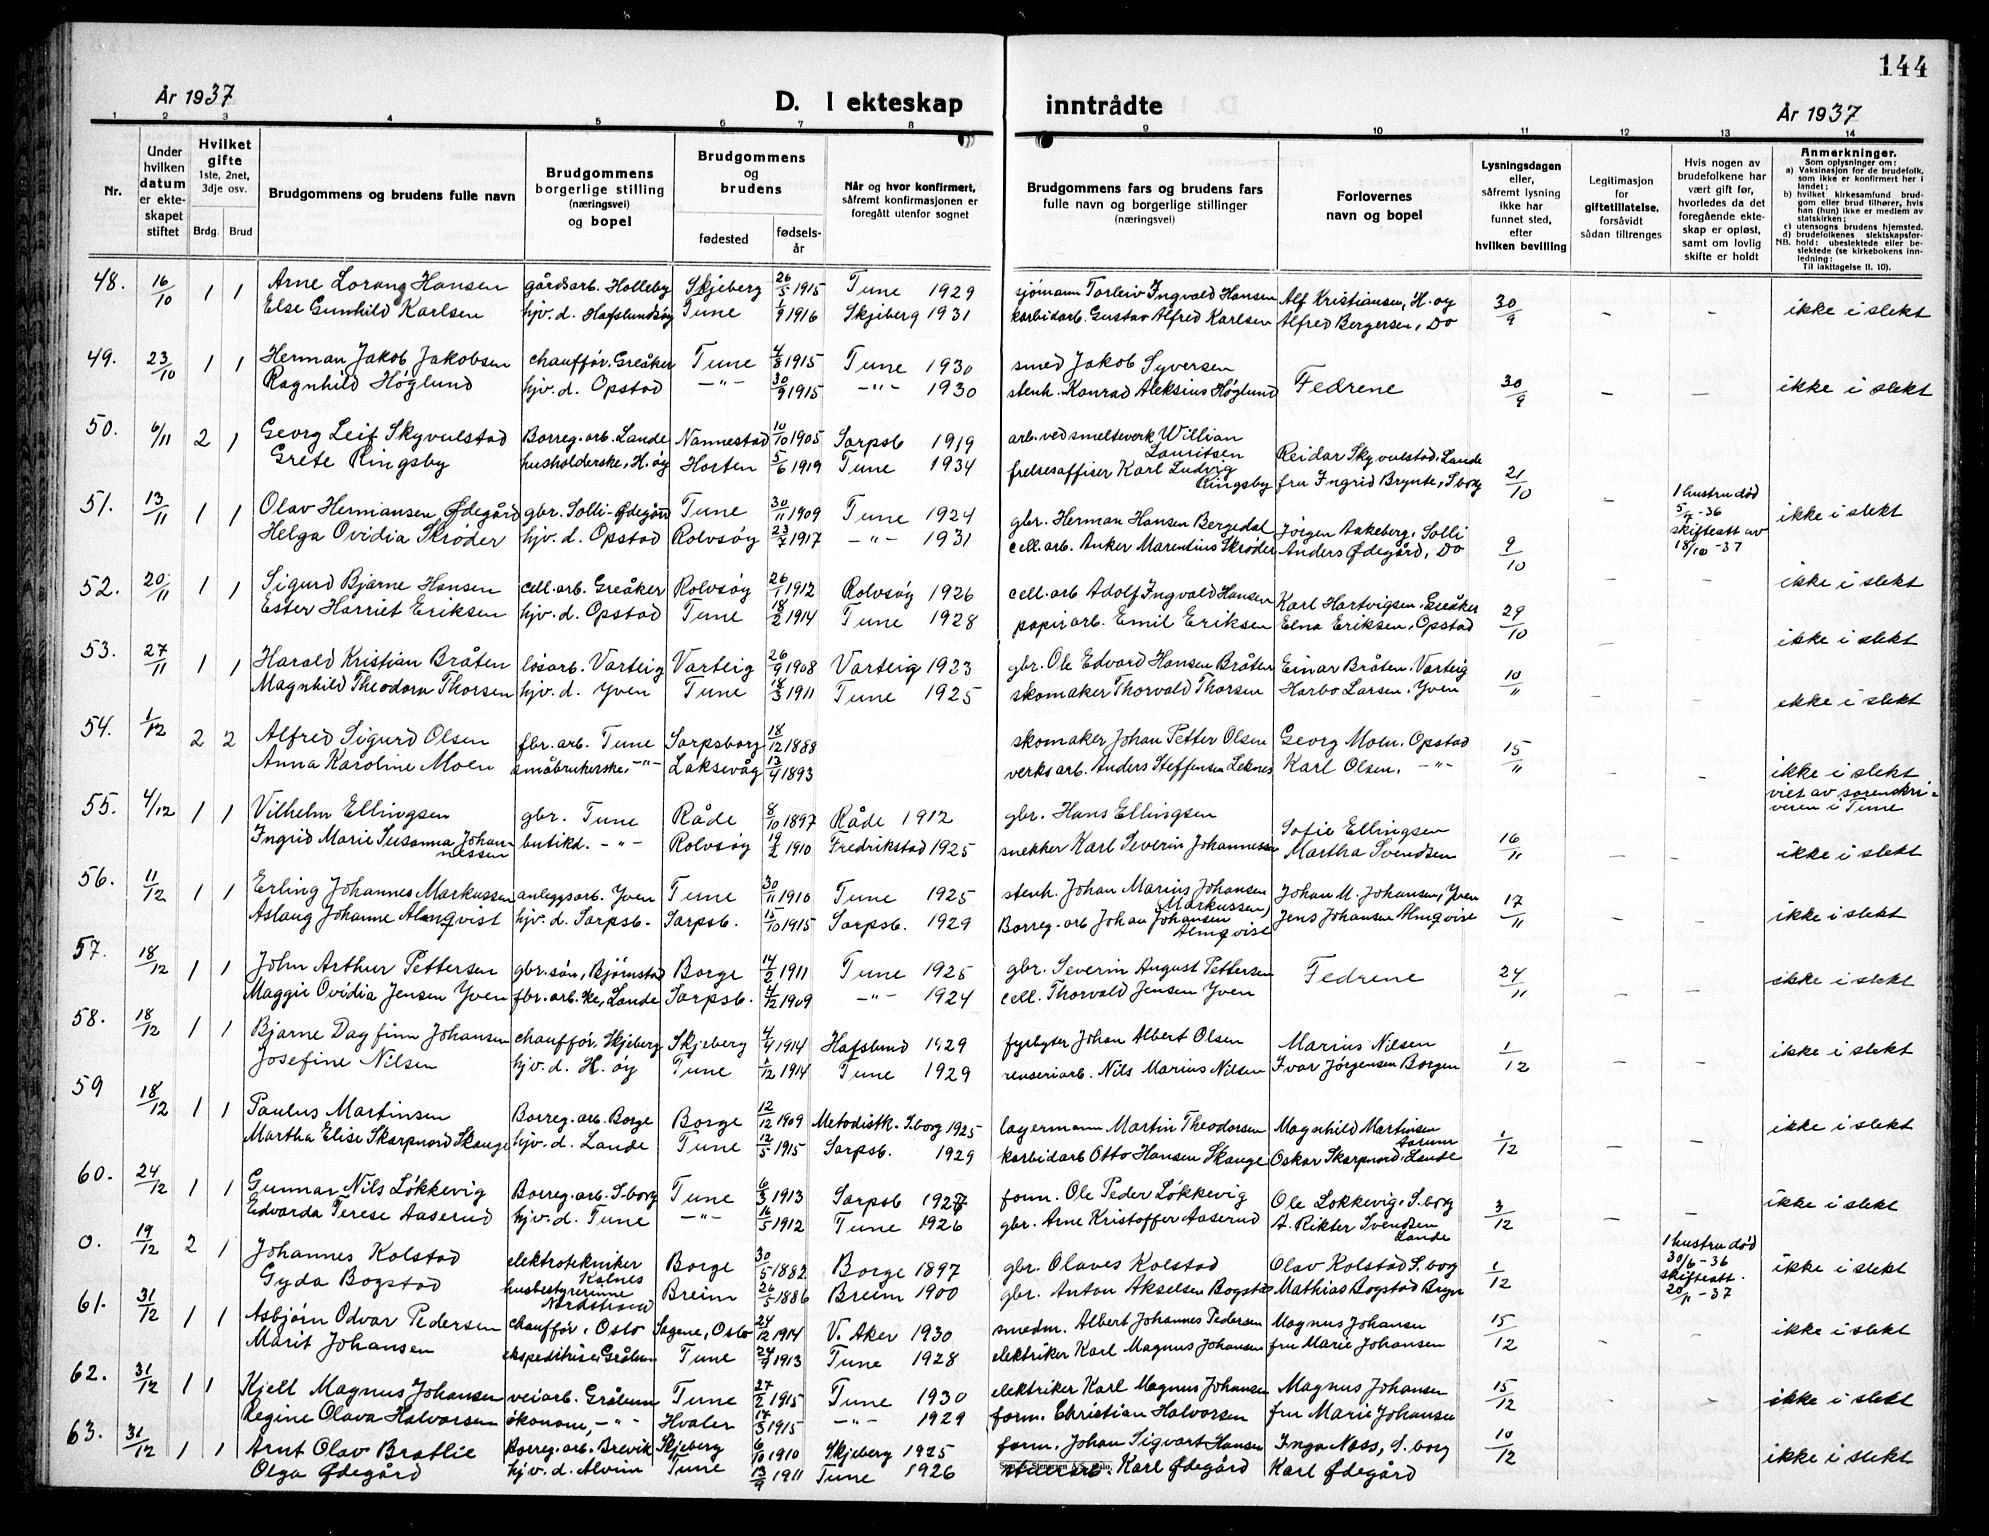 144
År 1937
D. I ekteskap inntrådte
År 1937
1 2 3 4 5 6 7 8 9 10 11 12 13 14
Nr.
Under hvilken datum er ekteskapet stiftet
Hvilket gifte 1ste, 2net, 3dje osv.
Brdg. Brud
Brudgommens og brudens fulle navn
Brudgommens borgerlige stilling (næringsvei) og bopel
Brudgommens og brudens
fødested
fødselsår
Når og hvor konfirmert, såfremt konfirmasjonen er foregått utenfor sognet
Brudgommens fars og brudens fars fulle navn og borgerlige stillinger (næringsvei)
Forlovernes navn og bopel
Lysningsdagen eller, såfremt lysning ikke har funnet sted, efter hvilken bevilling
Legitimasjon for giftetillatelse, forsåvidt sådan tiltrenges
Hvis nogen av brudefolkene har vært gift før, hvorledes da det foregående ekteskap er opløst, samt om lovlig skifte er holdt
Anmerkninger.
Som oplysninger om:
a) Vaksinasjon for de brudefolk, som ikke er konfirmert her i landet;
b) hvilket kirkesamfund brudgom eller brud tilhører, hvis han (hun) ikke er medlem av statskirken;
c) utensogns brudens hjemsted.
d) brudefolkenes slektskapsforhold: ubeslektede eller beslektede (se kirkebokens innledning:
NB.
Til iakttagelse II. 10).
48. 16/10 1 1 Arne Lorang Hansen gårdsarb. Holleby Skjeberg 26/5 1915 Tune 1929 sjømann Torleiv Ingvald Hansen Alf Kristiansen, H.øy 30/9 – – ikke i slekt
Else Gunhild Karlsen hjv. d. Hafslundsøy Tune 1/9 1916 Skjeberg 1931 karbidarb. Gustav Alfred Karlsen Alfred Bergersen, Do
49. 23/10 1 1 Herman Jakob Jakobsen chauffør, Greåker Tune 4/8 1915 Tune 1930 smed Jakob Syversen Fedrene 30/9 – – ikke i slekt
Ragnhild Høglund hjv. d. Opstad –"– 30/9 1915 –"– 1930 stenh. Konrad Aleksius Høglund
50. 6/11 2 1 Georg Leif Skyvulstad Borreg.arb. Lande Nannestad 10/10 1905 Sarpsb 1919 arb. ved smelteverk Willian Lauritsen Reidar Skyvulstad, Lande 21/10 – 1 hustru død 5/7-36 skifteatt av 18/10-37 ikke i slekt
Grete Ringsby husholderske, H.øy Horten 5/6 1919 Tune 1934 frelsesaffiser Karl Ludvig Ringsby fru Ingrid Brynte, S.borg
51. 13/11 1 1 Olav Hermansen Ødegård gbr. Solli-Ødegård Tune 30/11 1909 Tune 1924 gbr. Herman Hansen Bergedal Jørgen Aakeberg, Solli 9/10 – – ikke i slekt
Helga Ovidia Skrøder hjv. d. Opstad Rolvsøy 23/7 1917 –"– 1931 cell. arb. Anker Marentius Skrøder Anders Ødegård, Do
52. 20/11 1 1 Sigurd Bjarne Hansen cell. arb. Greåker Rolvsøy 26/1 1912 Rolvsøy 1926 cell. arb Adolf Ingvald Hansen Karl Hartvigsen, Greåker 29/10 – – ikke i slekt
Ester Harriet Eriksen hjv. d. Opstad Tune 18/2 1914 Tune 1928 papirarb. Emil Eriksen Elna Eriksen, Opstad
53. 27/11 1 1 Harald Kristian Bråten løsarb. Varteig Varteig 26/9 1908 Varteig 1923 gbr. Ole Edvard Hansen Bråten Einar Bråten, Varteig 10/11 – – ikke i slekt
Magnhild Theodora Thorsen hjv. d. Yven Tune 18/3 1911 Tune 1925 skomaker Thorvald Thorsen Harbo Larsen, Yven
54. 1/12 2 2 Alfred Sigurd Olsen fbr. arb. Tune Sarpsborg 18/12 1888 skomaker Johan Petter Olsen Georg Moen, Opstad 15/11 ikke i slekt viet av sorenskriveren i Tune
Anna Karoline Moen småbrukerske, –"– Laksevåg 13/4 1893 verksarb. Anders Steffensen Leknes Karl Olsen, –"–
55. 4/12 1 1 Vilhelm Ellingsen gbr. Tune Råde 8/10 1897 Råde 1912 gbr. Hans Ellingsen Sofie Ellingsen 16/11 – – ikke i slekt
Ingrid Marie Susanna Johannessen butikd. –"– Rolvsøy 19/2 1910 Fredrikstad 1925 snekker Karl Severin Johannessen Martha Svendsen
56. 11/12 1 1 Erling Johannes Markussen anleggsarb. Yven Tune 30/11 1910 Tune 1925 stenh. Johan Marius Johansen Markussen, Johan M. Johansen, Yven 17/11 ikke i slekt
Aslaug Johanne Almqvist hjv. d. Sarpsb. Sarpsb. 15/10 1915 Sarpsb. 1929 Borreg. arb Johan Johansen Almqvist Jens Johansen Almqvist
57. 18/12 1 1 John Arthur Pettersen gbr. søn, Bjørnstad Borge 14/2 1911 Tune 1925 gbr. Severin August Pettersen Fedrene 24/11 – – ikke i slekt
Maggie Ovidia Jensen Yven fbr. arb.ke, Lande Sarpsb. 4/12 1909 –"– 1924 cell. Thorvald Jensen Yven
58. 18/12 1 1 Bjarne Dagfinn Johansen chauffør, Skjeberg Skjeberg 4/4 1914 Hafslund 1929 fyrbøter Johan Albert Olsen Marius Nilsen 1/12 – – ikke i slekt
Josefine Nilsen hjv. d. H. øy Tune 1/12 1914 Tune 1929 renseriarb. Nils Marius Nilsen Ivar Jørgensen Borgen
59 18/12 1 1 Paulus Martinsen Borreg. arb. Borge Borge 12/12 1909 Metodistk. S.borg 1925 lagermann Martin Theodorsen Magnhild Martinsen Aarum 1/12 – – ikke i slekt
Martha Elise Skarpnord Skauge hjv. d. Lande Tune 12/5 1915 Sarpsb. 1929 karbidarb Otto Hansen Skauge Oskar Skarpnord, Lande
60. 24/12 1 1 Gunnar Nils Løkkevig Borreg. arb. S-borg Tune 6/3 1913 Sarpsb 1927 form. Ole Peder Løkkevig Ole Løkkevig, S.borg 3/12 – – ikke i slekt
Edvarda Terese Aaserud hjv. d. Tune –"– 16/5 1912 Tune 1926 gbr. Arne Kristoffer Aaserud A. Rikter Svendsen Lande
0. 19/12 2 1 Johannes Kolstad elektrotekniker Kalnes Borge 30/5 1882 Borge 1897 gbr. Olaves Kolstad Olav Kolstad S.borg 1/12 1 hustru død 30/6-36 skifteatt. 20/11-37 ikke i slekt
Gyda Bogstad husbestyrerinne Nordstrand Breim 26/5 1886 Breim 1900 gbr. Anton Akselsen Bogstad Mathias Bogstad Bryn
61. 31/12 1 1 Asbjørn Odvar Pedersen chauffør, Oslo Sagene, Oslo 24/12 1914 V. Aker 1930 smedm. Albert Johannes Pedersen Magnus Johansen 15/12 – ikke i slekt
Marit Johansen ekspeditrise, Grålum Tune 24/9 1913 Tune 1928 elektriker Karl Magnus Johansen fru Marie Johansen
62. 31/12 1 1 Kjell Magnus Johansen veiarb. Grålum Tune 27/2 1915 Tune 1930 elektriker Karl Magnus Johansen Magnus Johansen 15/12 – – ikke i slekt
Regine Olava Halvorsen økonom, –"– Hvaler 17/3 1915 –"– 1929 form. Christian Halvorsen fru Marie Johansen
63. 31/12 1 1 Arnt Olav Bratlie Borreg. arb. Brevik Skjeberg 6/10 1910 Skjeberg 1925 form. Johan Sigvart Hansen Inga Næss, S. borg 10/12 ikke i slekt
Olga Ødegård hjv. d. Alvim Tune 13/9 1911 Tune 1926 Karl Ødegård Karl Ødegård